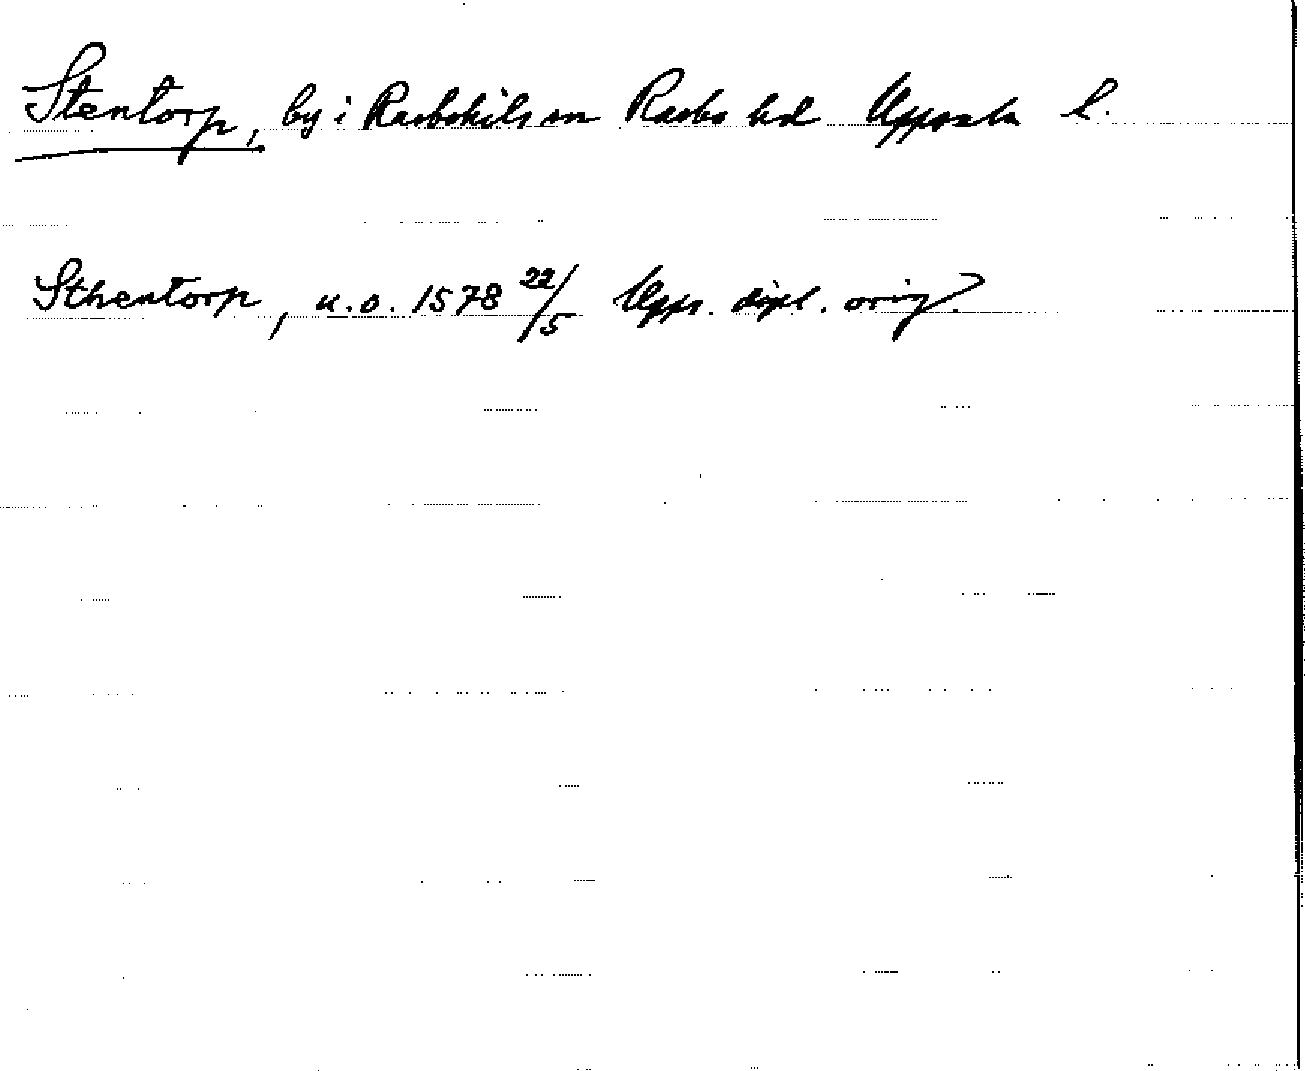 Stentorp, by i Rasbokils sn Rasbo hd Uppsala l.
Sthentorp, u.o. 1578 22/5 Upps. dipl. orig.